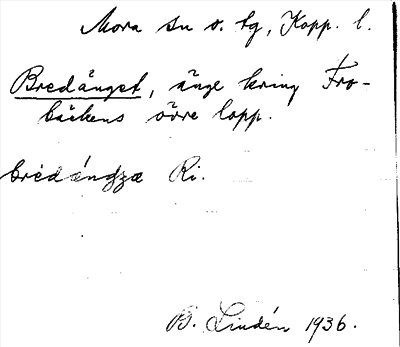 Mora sn o. tg, Kopp. l.
Bredänget, änge kring Fro-
bäckens övre lopp.
brèdáŋʒæ Ri.
B. Lindén 1936.